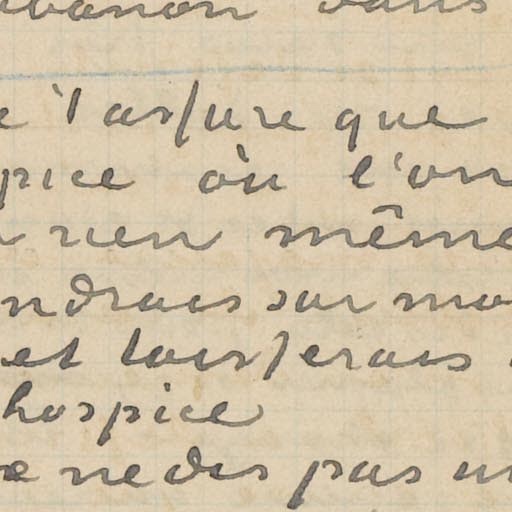 abanon dans
e t'assure que
pice où l'on
rien même
ndrais sur mo
et laisserais
hospice
e ne dis pas un